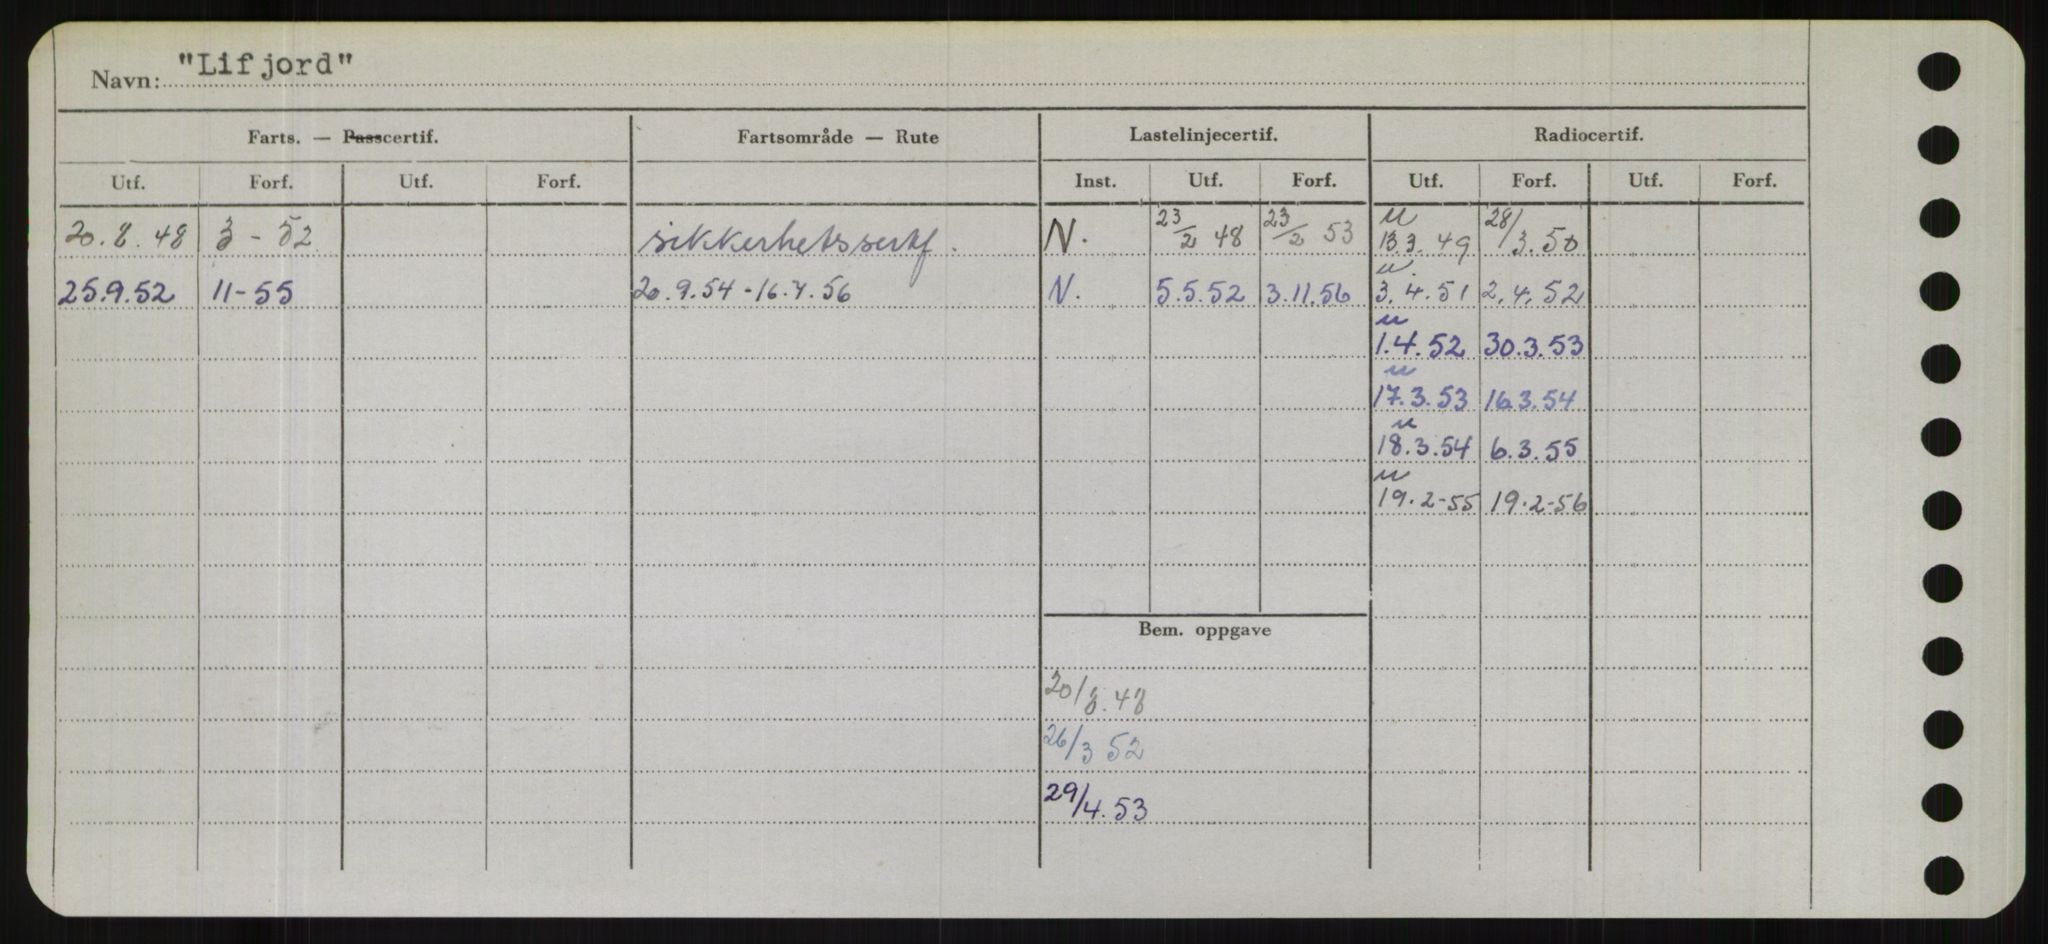 Navn: "Lifjord"
Farts. — Passcertif. Fartsområde — Rute Lastelinjecertif. Radiocertif.
Utf. Forf. Utf. Forf. Inst. Utf. Forf. Utf. Forf. Utf. Forf.
20.8.48 3-52 sikkerhetssertf. N. 23/2 48 23/2 53 u 13.3.49 28/3.50
25.9.52 11-55 20.9.54-16.7.56 N. 5.5.52 3.11.56 u 3.4.51 2.4.52
u 1.4.52 30.3.53
u 17.3.53 16.3.54
u 18.3.54 6.3.55
u 19.2-55 19.2-56
Bem. oppgave
20/8.48
26/3 52
29/4.53